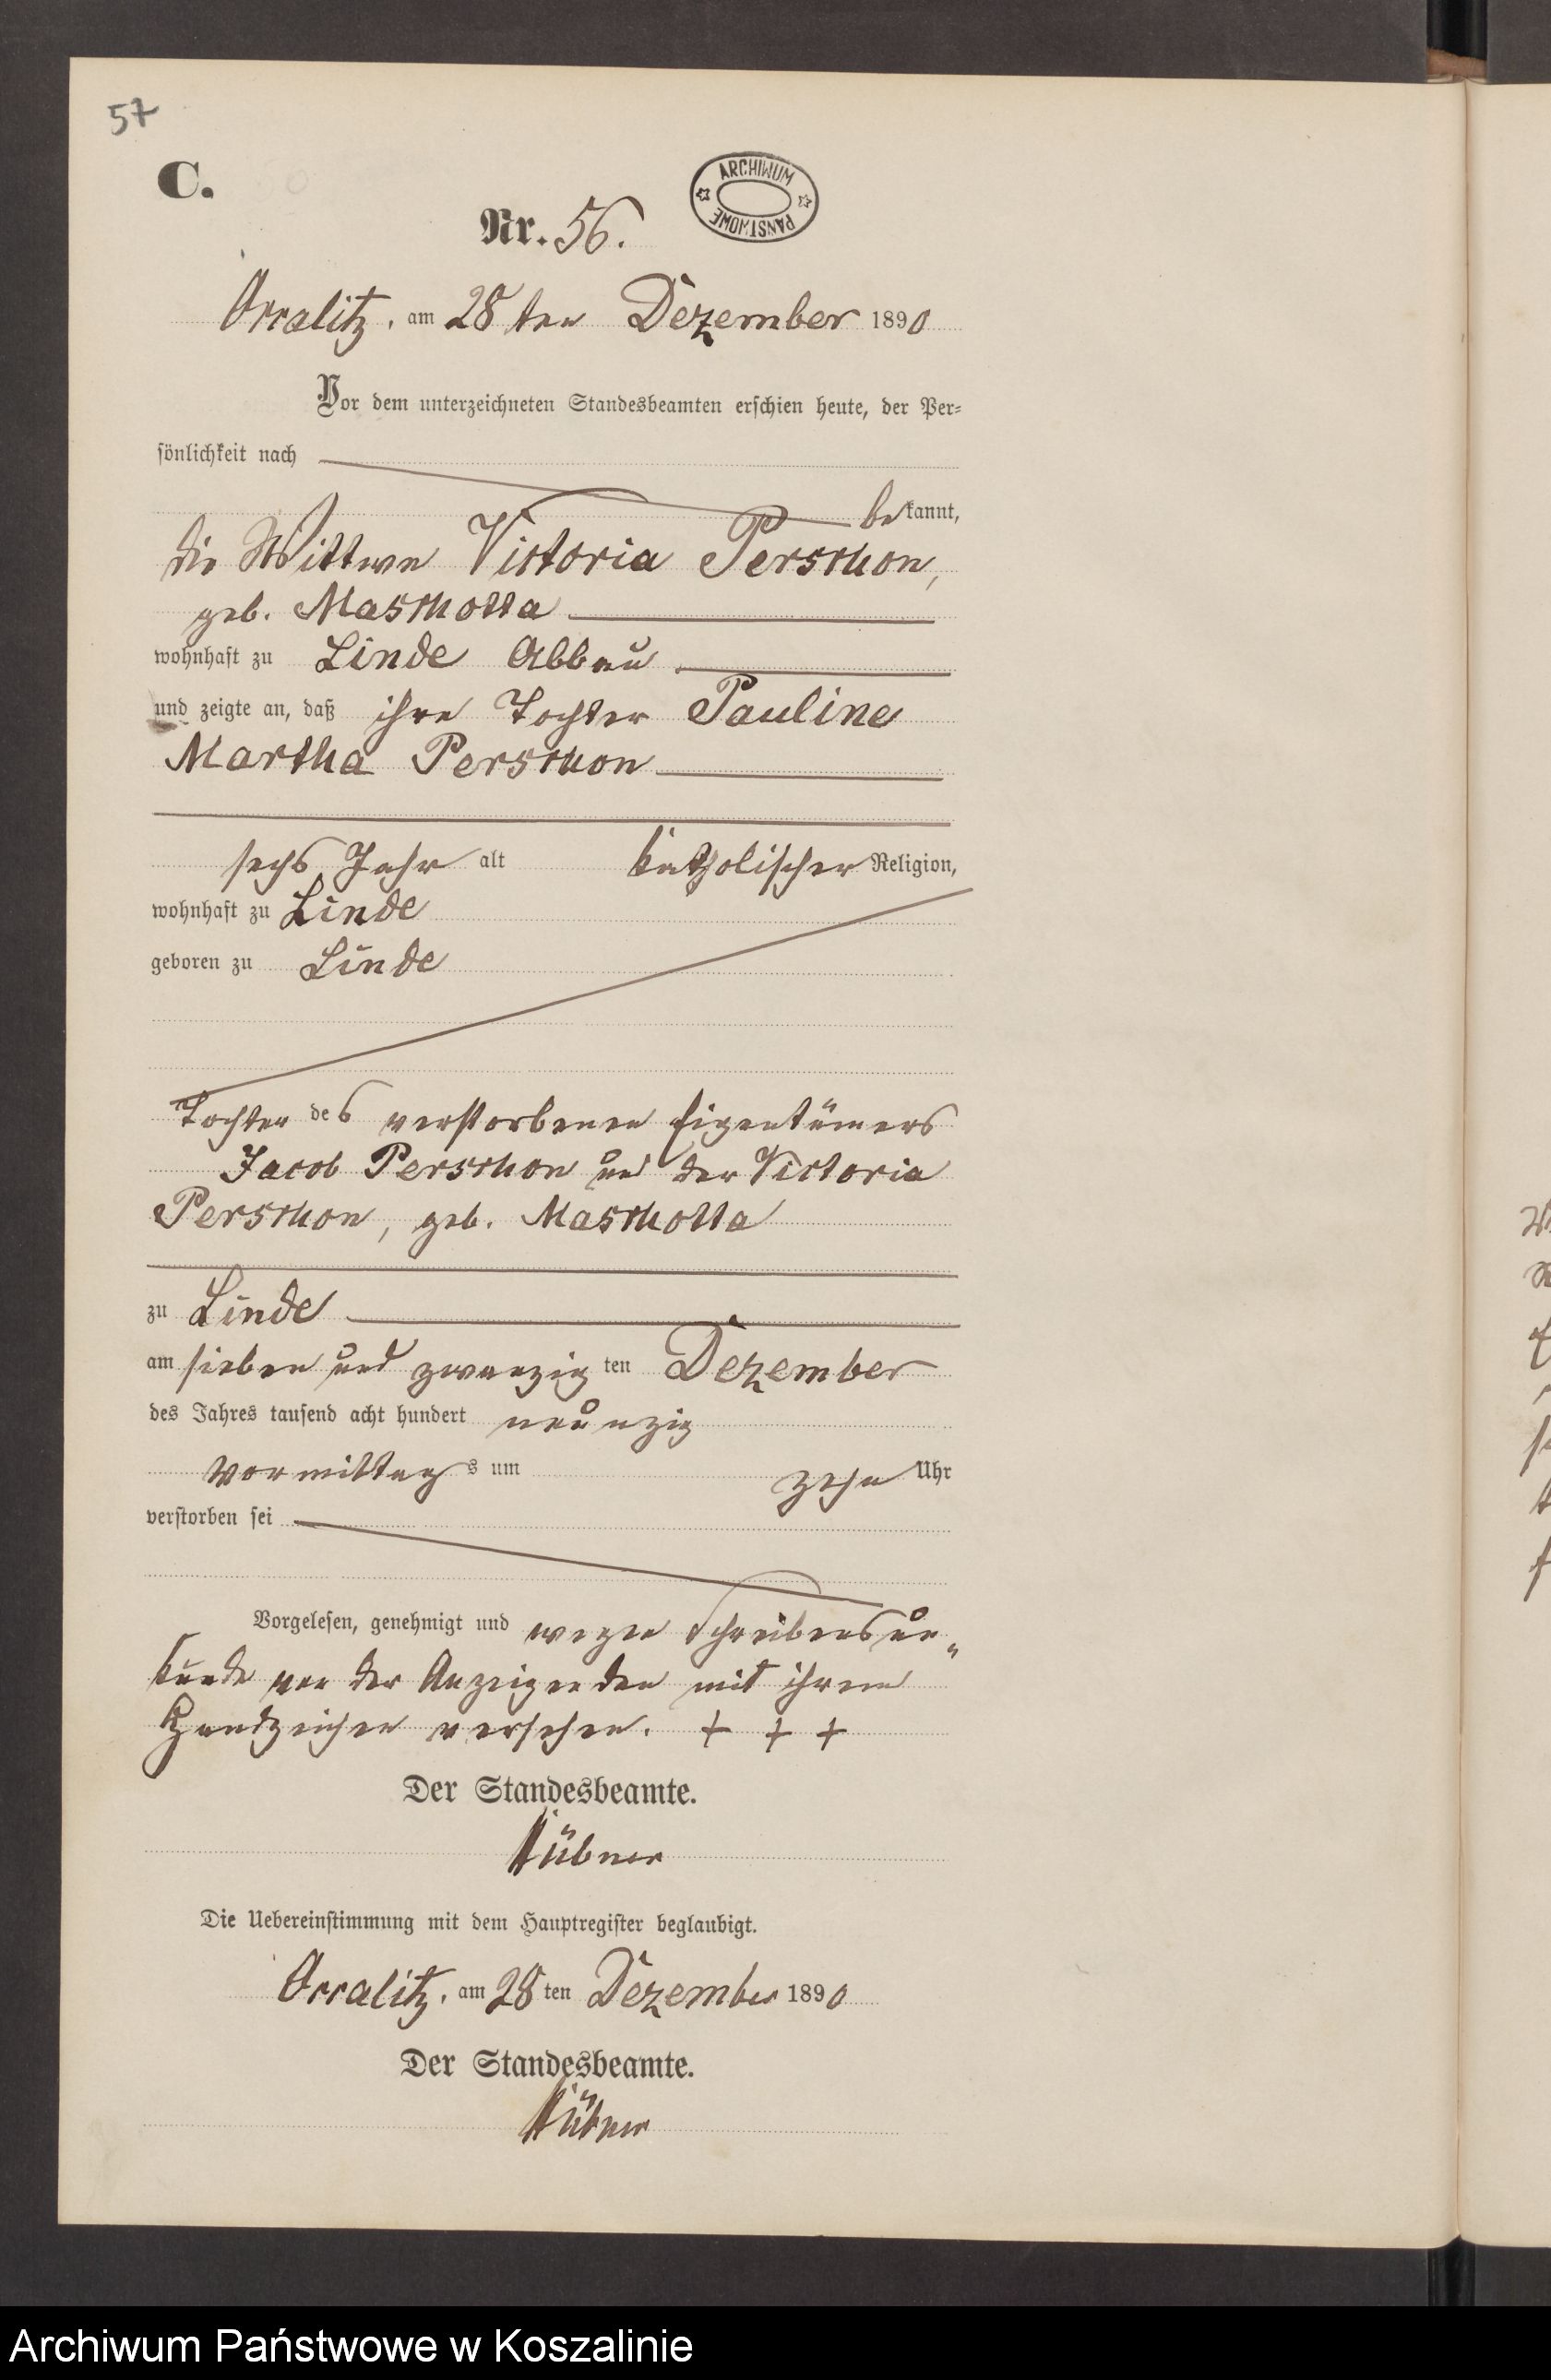 57
C.
ARCHIWUM PAŃSTWOWE
Nr. 56.
am 28 ten Dezember 1890
Vor dem unterzeichneten Standesbeamten erschien heute, der Per-
sönlichkeit nach
bekannt,
die Wittwe Victoria Perschon,
geb. Maschotta
wohnhaft zu Linde Abbau
und zeigte an, daß ihre Tochter Pauline
Martha Perschon
sechs Jahr alt katholischer Religion,
wohnhaft zu Linde
geboren zu Linde
Tochter des verstorbenen Eigentümers
Jacob Perschon und der Victoria
Perschon, geb. Maschotta
zu Linde
am sieben und zwanzig ten Dezember
des Jahres tausend acht hundert neunzig
Vormittags um zehn Uhr
verstorben sei
Vorgelesen, genehmigt und wegen Schreibensun„
kunde von der Anzeigenden mit ihrem
Handzeichen versehen. + + +
Der Standesbeamte.
Hübner
Die Uebereinstimmung mit dem Hauptregister beglaubigt.
am 28 ten Dezember 1890
Der Standesbeamte.
Hübner
Archiwum Państwowe w Koszalinie